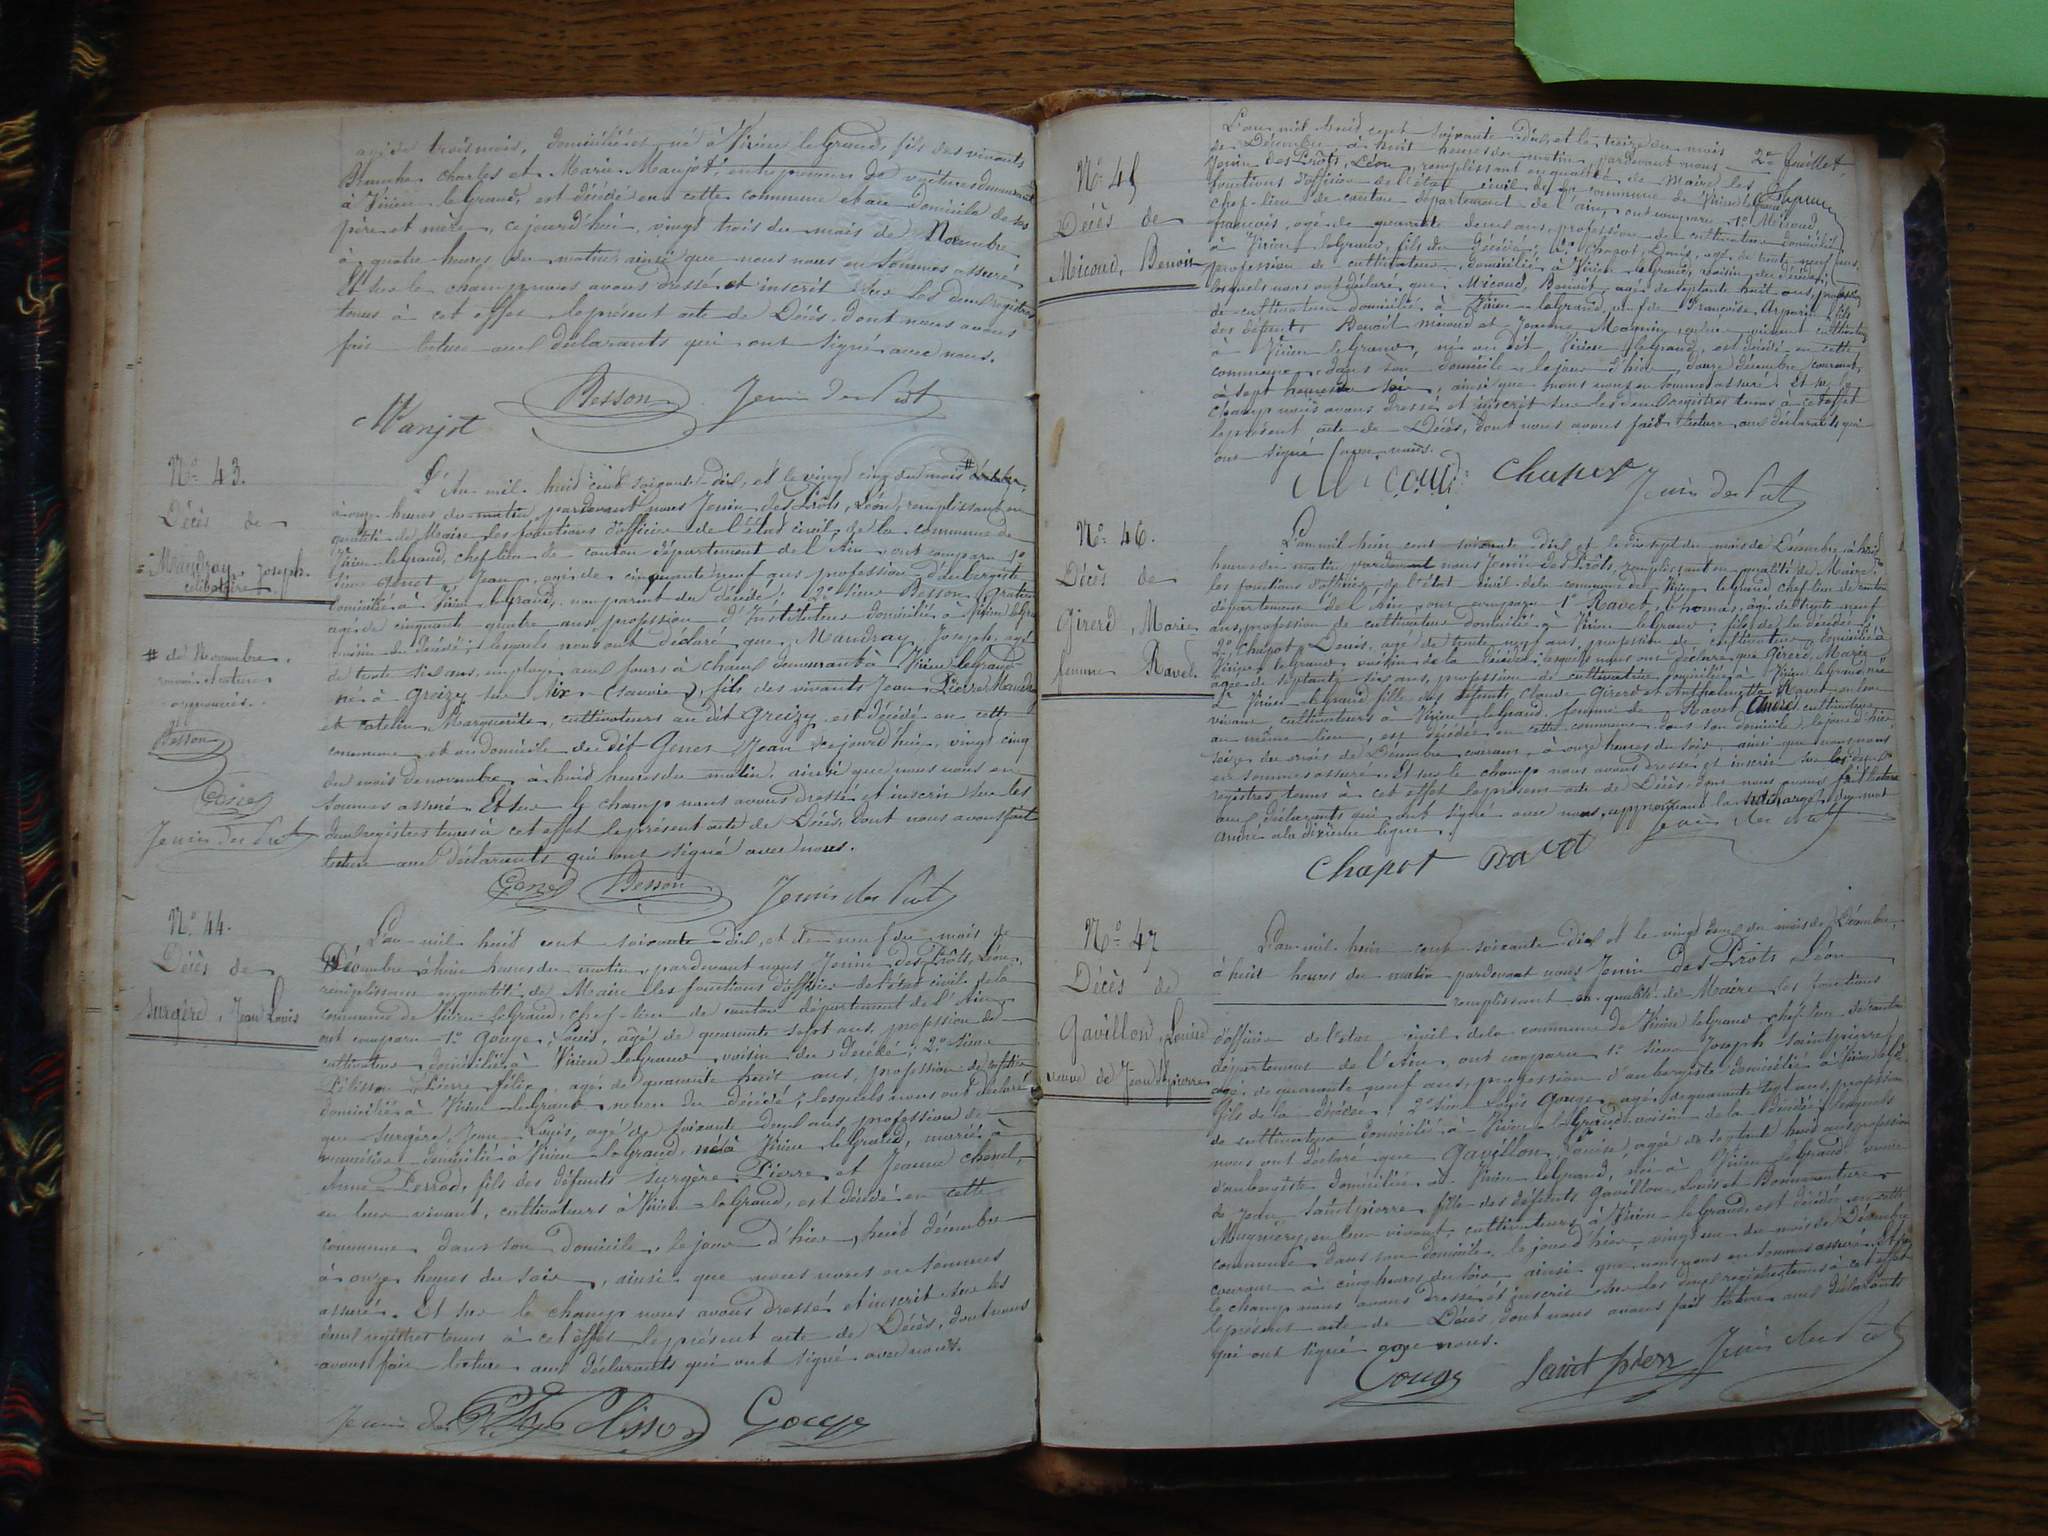 trois mois, domicilié et né à Virieu le Grand, fils des vivants
Charles et Marie Manjot, entrepreneur de voitures demeurant
à Virieu le Grand, est décédé en cette commune et au domicile de ses
père et mère, ce jourd'hui vingt trois du mois de Novembre
à quatre heures du matin ainsi que nous nous en sommes assuré
Et sur le champ nous avons dressé et inscrit sur les deux registres
tenus à cet effet le présent acte de Décès, dont nous avons
fait lecture aux déclarants qui ont signé avec nous.
Manjot Besson Jenin des Prôts
No 43.
Décès de
Maudray, Joseph
célibataire
# de Novembre
Besson
Genet
Jenin des Prôts
L'An mil huit cent soixante-dix, et le vingt cinq du mois #
à onze heures du matin, pardevant nous Jenin des Prôts, Léon, remplissant en
qualité de Maire les fonctions d'officier de l'état civil de la commune de
Virieu-le-Grand, chef-lieu de canton département de l'Ain, ont comparu 1o
sieur Genet, Jean, agé de cinquante neuf ans profession d'aubergiste
domicilié à Virieu le grand, non parent du décédé; 2o sieur Besson,
agé de cinquante quatre ans, profession d'Instituteur domicilié à Virieu le Grand
voisin du décédé; lesquels nous ont déclaré que, Maudray, Joseph, agé
de trente six ans, employé aux fours à chaux demeurant à Virieu le Grand
né à Grézy sur Aix (Savoie), fils des vivants Jean Pierre Maudray
et Marguerite, cultivateurs au dit Greizy, est décédé en cette
commune et au domicile du dit Genet Jean ce jourd'hui, vingt cinq
du mois de novembre, à huit heures du matin, ainsi que nous nous en
sommes assuré. Et sur le champ nous avons dressé et inscrit sur les
deux registres tenus à cet effet le présent acte de Décès, dont nous avons fait
lecture aux Déclarants qui ont signé avec nous.
Genet Besson Jenin des Prôts
No 44.
Décès de
Surgère, Jean Louis
L'an mil huit cent soixante-dix, et le neuf du mois de
Décembre à huit heures du matin, pardevant nous Jenin des Prôts, Léon,
remplissant en qualité de Maire les fonctions d'officier de l'état civil de la
commune de Virieu-le-Grand, chef-lieu de canton département de l'Ain
ont comparu 1o Gouge, Louis, agé de quarante sept ans, profession de
cultivateur domicilié à Virieu le Grand voisin du décédé; 2o sieur
Pélisson, Pierre Félix, agé de quarante huit ans, profession de
domicilié à Virieu-le-Grand, neveu du décédé; lesquels nous ont déclaré
que Surgère, Jean Louis, agé de soixante deux ans, profession de
domicilié à Virieu-le-Grand, né à Virieu le Grand, marié à
Anne Perrod, fils des défunts Surgère Pierre et Jeanne
en leur vivant, cultivateurs à Virieu-le-Grand, est décédé en cette
commune dans son domicile, le jour d'hier, huit décembre
à onze heures du soir, ainsi que nous nous en sommes
assuré. Et sur le champ nous avons dressé et inscrit sur les
deux registres tenus à cet effet le présent acte de Décès, dont nous
avons fait lecture aux déclarants qui ont signé avec nous.
Jenin des Prôts Pelisson Gouge
2e feuillet.
No 45
Décès de
Micoud, Benoit
L'an mil huit cent soixante-dix, et le treize du mois
de Décembre à huit heures du matin, pardevant nous
Jenin des Prôts, Léon, remplissant en qualité de Maire les
fonctions d'officier de l'état civil de la commune de Virieu le Grand
chef-lieu de canton département de l'Ain, ont comparu 1o Micoud,
françois, agé de quarante deux ans, profession de cultivateur domicilié
à Virieu le Grand, fils du décédé; 2o Chapot, Denis, agé de trente neuf ans,
profession de cultivateur, domicilié à Virieu le Grand, voisin du décédé;
lesquels nous ont déclaré que Micoud, Benoit, agé de septante huit ans, profession
de cultivateur domicilié à Virieu-le-Grand, de Françoise fils
des défunts Benoît Micoud et Jeanne en leur vivant cultivateurs
à Virieu le Grand, né au dit Virieu le Grand, est décédé en cette
commune, dans son domicile le jour d'hier, douze décembre courant,
à sept heures du soir, ainsi que nous nous en sommes assuré. Et sur le
champ nous avons dressé et inscrit sur les deux registres tenus à cet effet
le présent acte de Décès, dont nous avons fait lecture aux déclarants qui
ont signé avec nous.
Micoud Chapot Jenin des Prôts
No 46.
Décès de
Girerd, Marie
femme Ravet
L'an mil huit cent soixante dix et le dix sept du mois de Décembre à huit
heures du matin pardevant nous Jenin des Prôts, remplissant en qualité de Maire
les fonctions d'officier de l'état civil de la commune de Virieu le Grand chef lieu de canton
département de l'Ain, ont comparu 1o Ravet, Thomas, agé de trente neuf
ans, profession de cultivateur domicilié à Virieu le Grand, fils de la décédée;
2o Chapot, Denis, agé de trente neuf ans, profession de cultivateur, domicilié à
Virieu le grand, voisin de la décédée; lesquels nous ont déclaré que Girerd, Marie
agée de septante six ans, profession de cultivatrice domiciliée à Virieu le Grand, née
à Virieu le Grand fille des défunts, Claude Girerd et Anthelmette Ravet en leur
vivant, cultivateurs à Virieu le grand, femme de Ravet, André cultivateur
au même lieu, est décédée en cette commune, dans son domicile, le jour d'hier
seize du mois de Décembre courant, à onze heures du soir ainsi que nous nous
en sommes assuré. Et sur le champ nous avons dressé et inscrit sur les deux
registres tenus à cet effet le présent acte de Décès, dont nous avons fait lecture
aux déclarants qui ont signé avec nous, approuvant la surcharge du mot
André à la dixième ligne.
Chapot Ravet Jenin des Prôts
No 47
Décès de
Gavillon, Louise
veuve de Jean St pierre
L'an mil huit cent soixante-dix et le vingt deux du mois de Décembre,
à huit heures du matin pardevant nous Jenin Des Prôts Léon
remplissant en qualité de Maire les fonctions
d'officier de l'état civil de la commune de Virieu le Grand chef-lieu de canton
département de l'Ain, ont comparu 1o sieur Joseph Saintpierre
agé de quarante neuf ans, profession d'aubergiste domicilié à Virieu le Gd
fils de la décédée; 2o sieur Louis Gouge agé de quarante sept ans, profession
de cultivateur domicilié à Virieu-le Grand voisin de la décédée; lesquels
nous ont déclaré que Gavillon, Louise, agée de septante huit ans profession
d'aubergiste domiciliée à Virieu leGrand, née à Virieu le Grand, veuve
de Jean Saintpierre fille des défunts Gavillon Louis et Bonnaventure
Mugniery, en leur vivant, cultivateurs à Virieu-le Grand, est décédée en cette
commune dans son domicile, le jour d'hier, vingt un du mois de Décembre
courant à cinq heures du soir ainsi que nous nous en sommes assuré. Et sur
le champ nous avons dressé et inscrit sur les deux registres tenus à cet effet
le présent acte de Décès, dont nous avons fait lecture aux déclarants
qui ont signé avec nous.
Gouge Saint pierre Jenin des Prôts